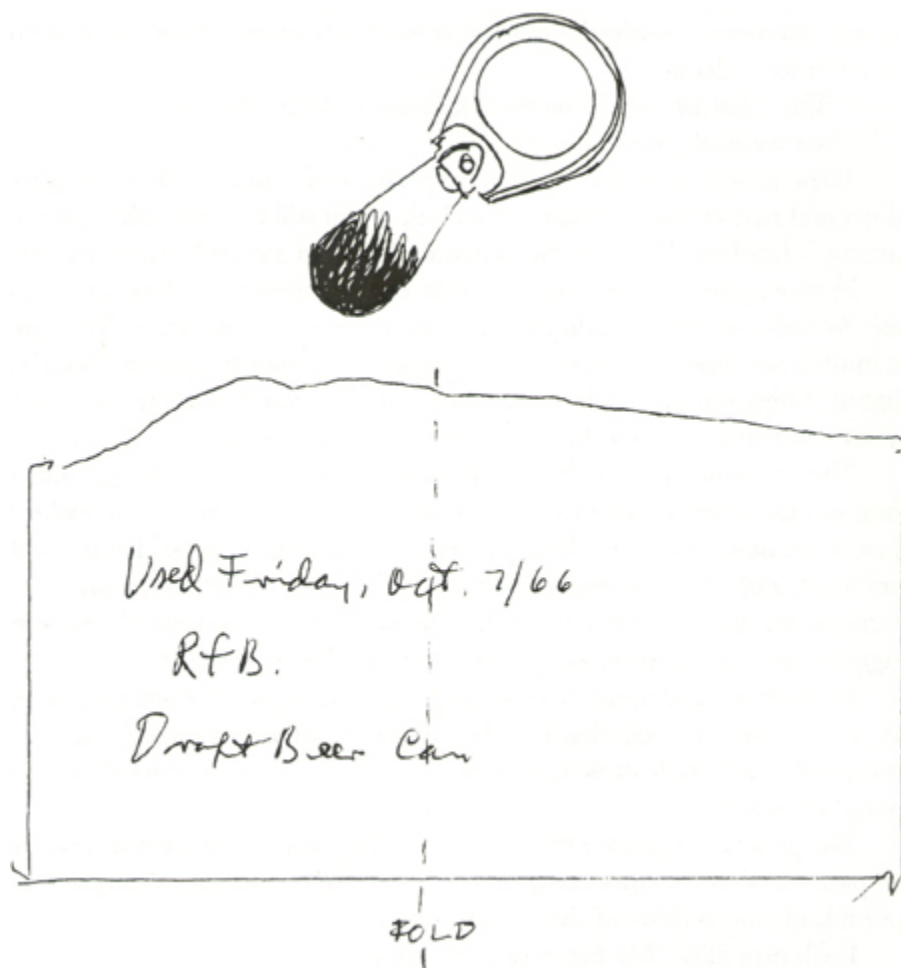 Used Friday, Oct. 7/66
RFB.
Draft Beer Can
FOLD